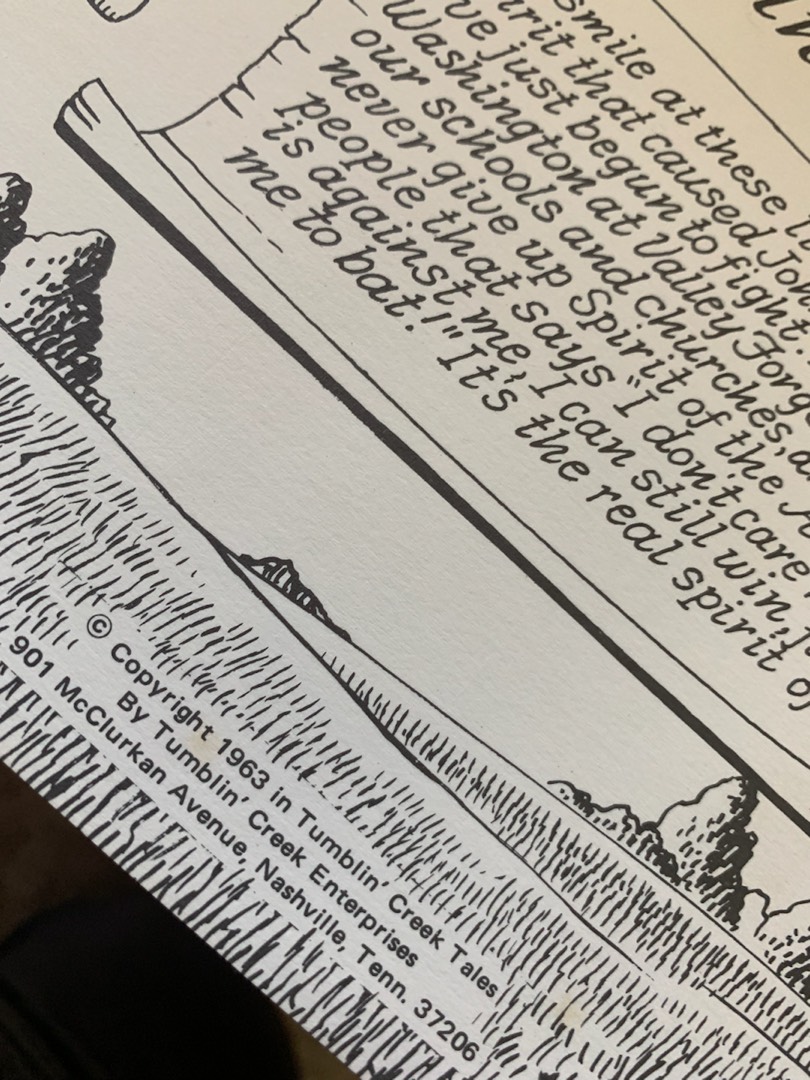 smile at these
that caused
just begun to fight.
Washington at Valley
our schools and churches,
never give up Spirit of the
people that says "I don't care
is against me, I can still win,
me to bat!" It's the real spirit of
© Copyright 1963 in Tumblin' Creek Tales
By Tumblin' Creek Enterprises
901 McClurkan Avenue, Nashville, Tenn. 37206